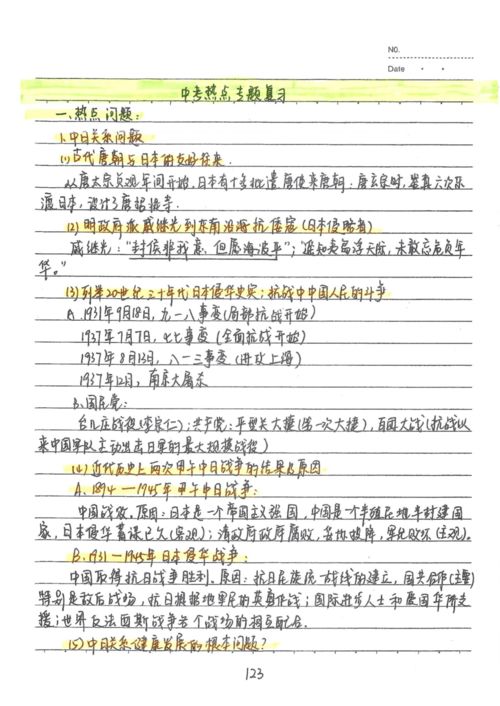 NO.
Date
中考热点专题复习
一、热点问题：
1、中日关系问题
(1)古代唐朝与日本的友好往来.
从唐太宗贞观年间开始,日本有十多批遣唐使来唐朝；唐玄宗时,鉴真六次东
渡日本，设计了唐招提寺.
(2)明政府派戚继光到东南沿海抗倭寇(日本侵略者)
戚继光："封侯非我意，但愿海波平"；"遥知夷岛浮天际，未敢忘危负年
华。"
(3)列举20世纪三十年代日本侵华史实；抗战中中国人民的斗争
A.1931年9月18日,九一八事变(局部抗战开始)
1937年7月7日,七七事变(全面抗战开始)
1937年8月13日,八一三事变(进攻上海)
1937年12月,南京大屠杀
B.国民党：
台儿庄战役(李宗仁)；共产党：平型关大捷(第一次大捷)，百团大战(抗战以
来中国军队主动出击日军的最大规模战役)
(4)近代历史上两次甲午中日战争的结果及原因
A.1894—1945年甲午中日战争：
中国战败.原因：日本是一个帝国主义强国，中国是个半殖民地半封建国
家，日本侵华蓄谋已久(客观)；清政府政府腐败，妥协投降，军纪败坏(主观).
B.1931—1945年日本侵华战争：
中国取得抗日战争胜利.原因：抗日民族统一战线的建立，国共合作(主要)
特别是敌后战场，抗日根据地军民的英勇作战；国际进步人士和爱国华侨支
援；世界反法西斯战争各个战场的相互配合.
(5)中日关系健康发展的根本问题？
123